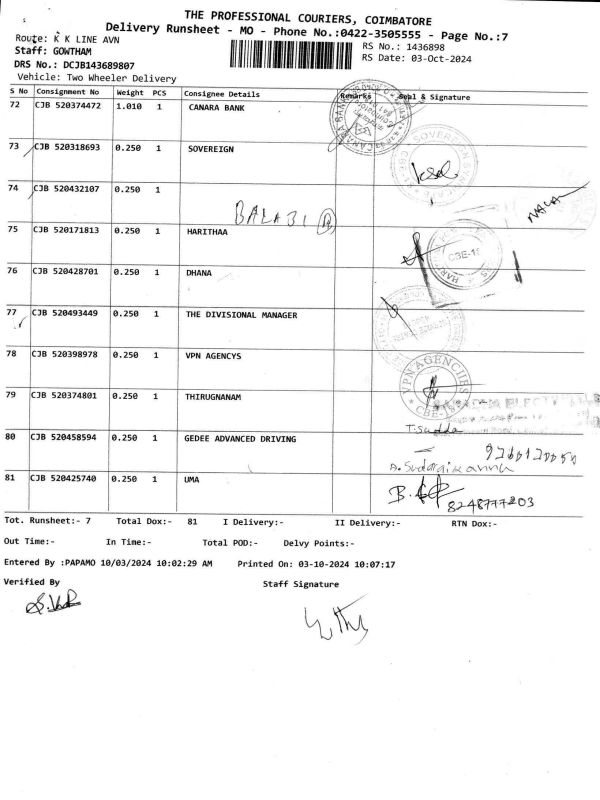 THE PROFESSIONAL COURIERS, COIMBATORE
Delivery Runsheet - MO - Phone No.:0422-3505555 - Page No.:7
Route: K K LINE AVN
RS No.: 1436898
Staff: GOWTHAM
RS Date: 03-Oct-2024
DRS No.: DCJB143689807
Vehicle: Two Wheeler Delivery
S No Consignment No Weight PCS Consignee Details Remarks Seal & Signature
72 CJB 520374472 1.010 1 CANARA BANK
73 CJB 520318693 0.250 1 SOVEREIGN
74 CJB 520432107 0.250 1
75 CJB 520171813 0.250 1 HARITHAA
CBE-18
76 CJB 520428701 0.250 1 DHANA
77 CJB 520493449 0.250 1 THE DIVISIONAL MANAGER
78 CJB 520398978 0.250 1 VPN AGENCYS
VPN AGENCIES
79 CJB 520374801 0.250 1 THIRUGNANAM
80 CJB 520458594 0.250 1 GEDEE ADVANCED DRIVING
81 CJB 520425740 0.250 1 UMA
Tot. Runsheet:- 7 Total Dox:- 81 I Delivery:- II Delivery:- RTN Dox:-
Out Time:- In Time:- Total POD:- Delvy Points:-
Entered By :PAPAMO 10/03/2024 10:02:29 AM Printed On: 03-10-2024 10:07:17
Verified By Staff Signature